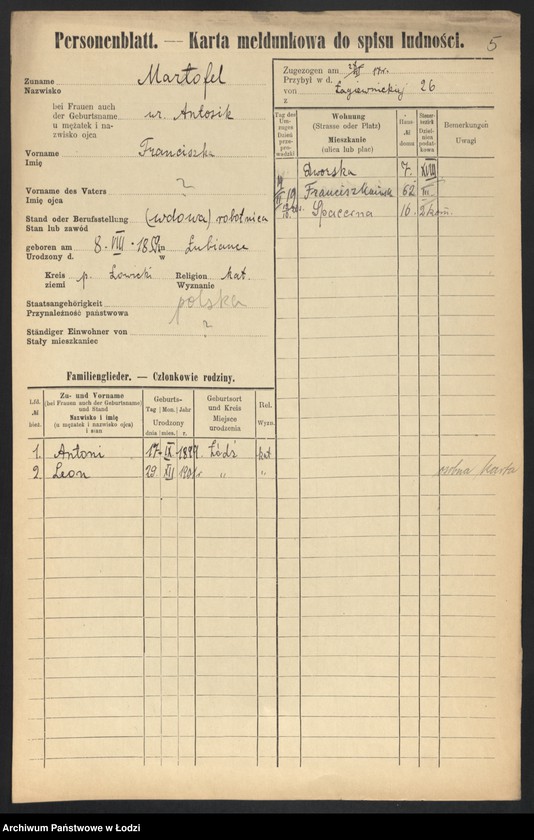 Personenblatt. — Karta meldunkowa do spisu ludności.
5
Zuname
Nazwisko
Martofel
bei Frauen auch
der Geburtsname
u mężatek i na-
zwisko ojca
ur. Antosik
Vorname
Imię
Franciszka
Vorname des Vaters
Imię ojca
?
Stand oder Berufsstellung
Stan lub zawód
(wdowa) robotnica
geboren am
Urodzony d.
8. VIII. in
w
Lubianca
Kreis
ziemi
p. Łowicki
Religion
Wyznanie
kat.
Staatsangehörigkeit
Przynależność państwowa
polska
Ständiger Einwohner von
Stały mieszkaniec
?
Zugezogen am
Przybył w d.
von
z
Łagiewnickiej 26
Tag der
Um-
zuges
Dzień
prze-
prowadzki
Wohnung
(Strasse oder Platz)
Mieszkanie
(ulica lub plac)
Haus-
№
domu
Dziel-
nica
podat-
kowa
Bemerkungen
Uwagi
Dworska 7. XVIII
Franciszkańska 62 III
Spacerna 16. 2 kom.
Familienglieder. — Członkowie rodziny.
Lfd.
№
bież.
Zu- und Vorname
(bei Frauen auch der Geburtsname)
und Stand
Nazwisko i imię
(u mężatek i nazwisko ojca)
i stan
Geburts-
Tag Mon. Jahr
Urodzony
dnia mies. r.
Geburtsort
und Kreis
Miejsce
urodzenia
Rel.
Wyzn.
1. Antoni 17 IX Łódź kat
2. Leon 29 XII „ „
osobna karta
Archiwum Państwowe w Łodzi